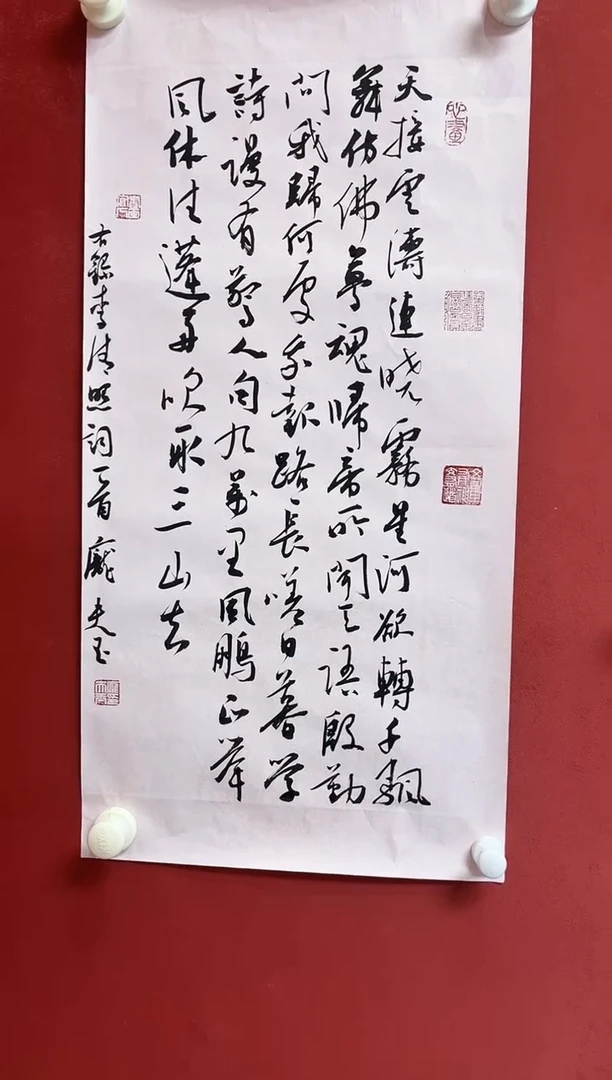 天接雲濤連曉霧星河欲轉千颿
舞仿佛夢魂歸帝所聞天語殷勤
問我歸何處我報路長嗟日暮學
詩謾有驚人句九萬里風鵬正舉
風休住蓬舟吹取三山去
右錄李清照詞一首龐夫玉